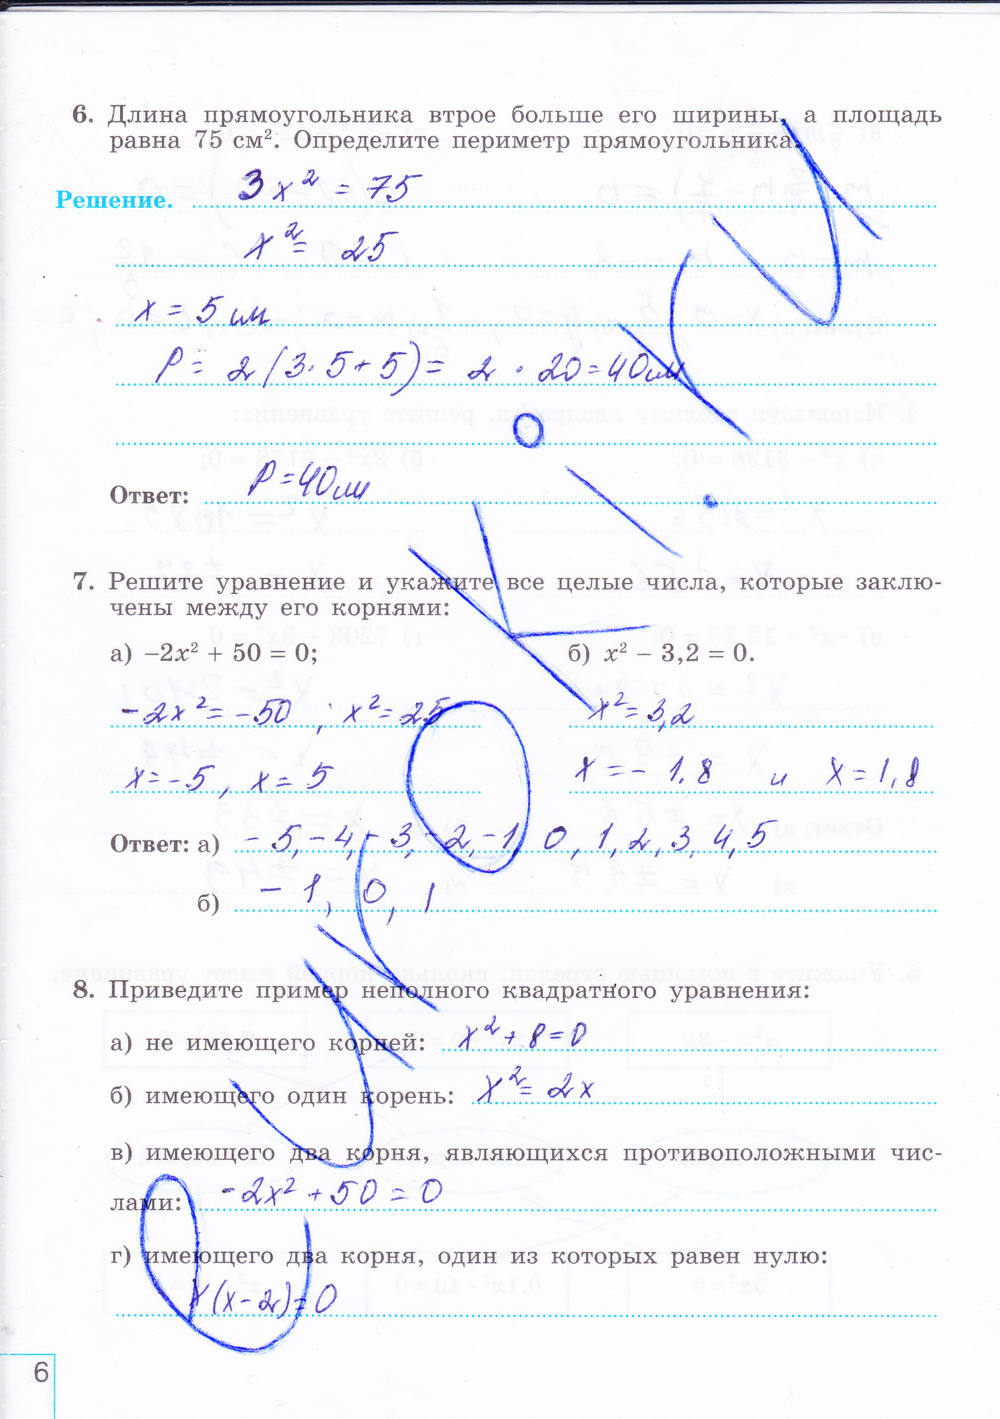 6. Длина прямоугольника втрое больше его ширины, а площадь
равна 75 см². Определите периметр прямоугольника.
Решение. 3x² = 75
x² = 25
x = 5 см
P = 2(3·5+5) = 2 · 20 = 40 см
Ответ: P = 40 см
7. Решите уравнение и укажите все целые числа, которые заклю-
чены между его корнями:
а) –2x² + 50 = 0; б) x² – 3,2 = 0.
-2x² = -50 ; x² = 25 x² = 3,2
x = -5, x = 5 x = - 1.8 и x = 1,8
Ответ: а) -5, -4, -3, -2, -1, 0, 1, 2, 3, 4, 5
б) -1, 0, 1
8. Приведите пример неполного квадратного уравнения:
а) не имеющего корней: x² + 8 = 0
б) имеющего один корень: x² = 2x
в) имеющего два корня, являющихся противоположными чис-
лами: -2x² + 50 = 0
г) имеющего два корня, один из которых равен нулю:
x(x-2) = 0
6